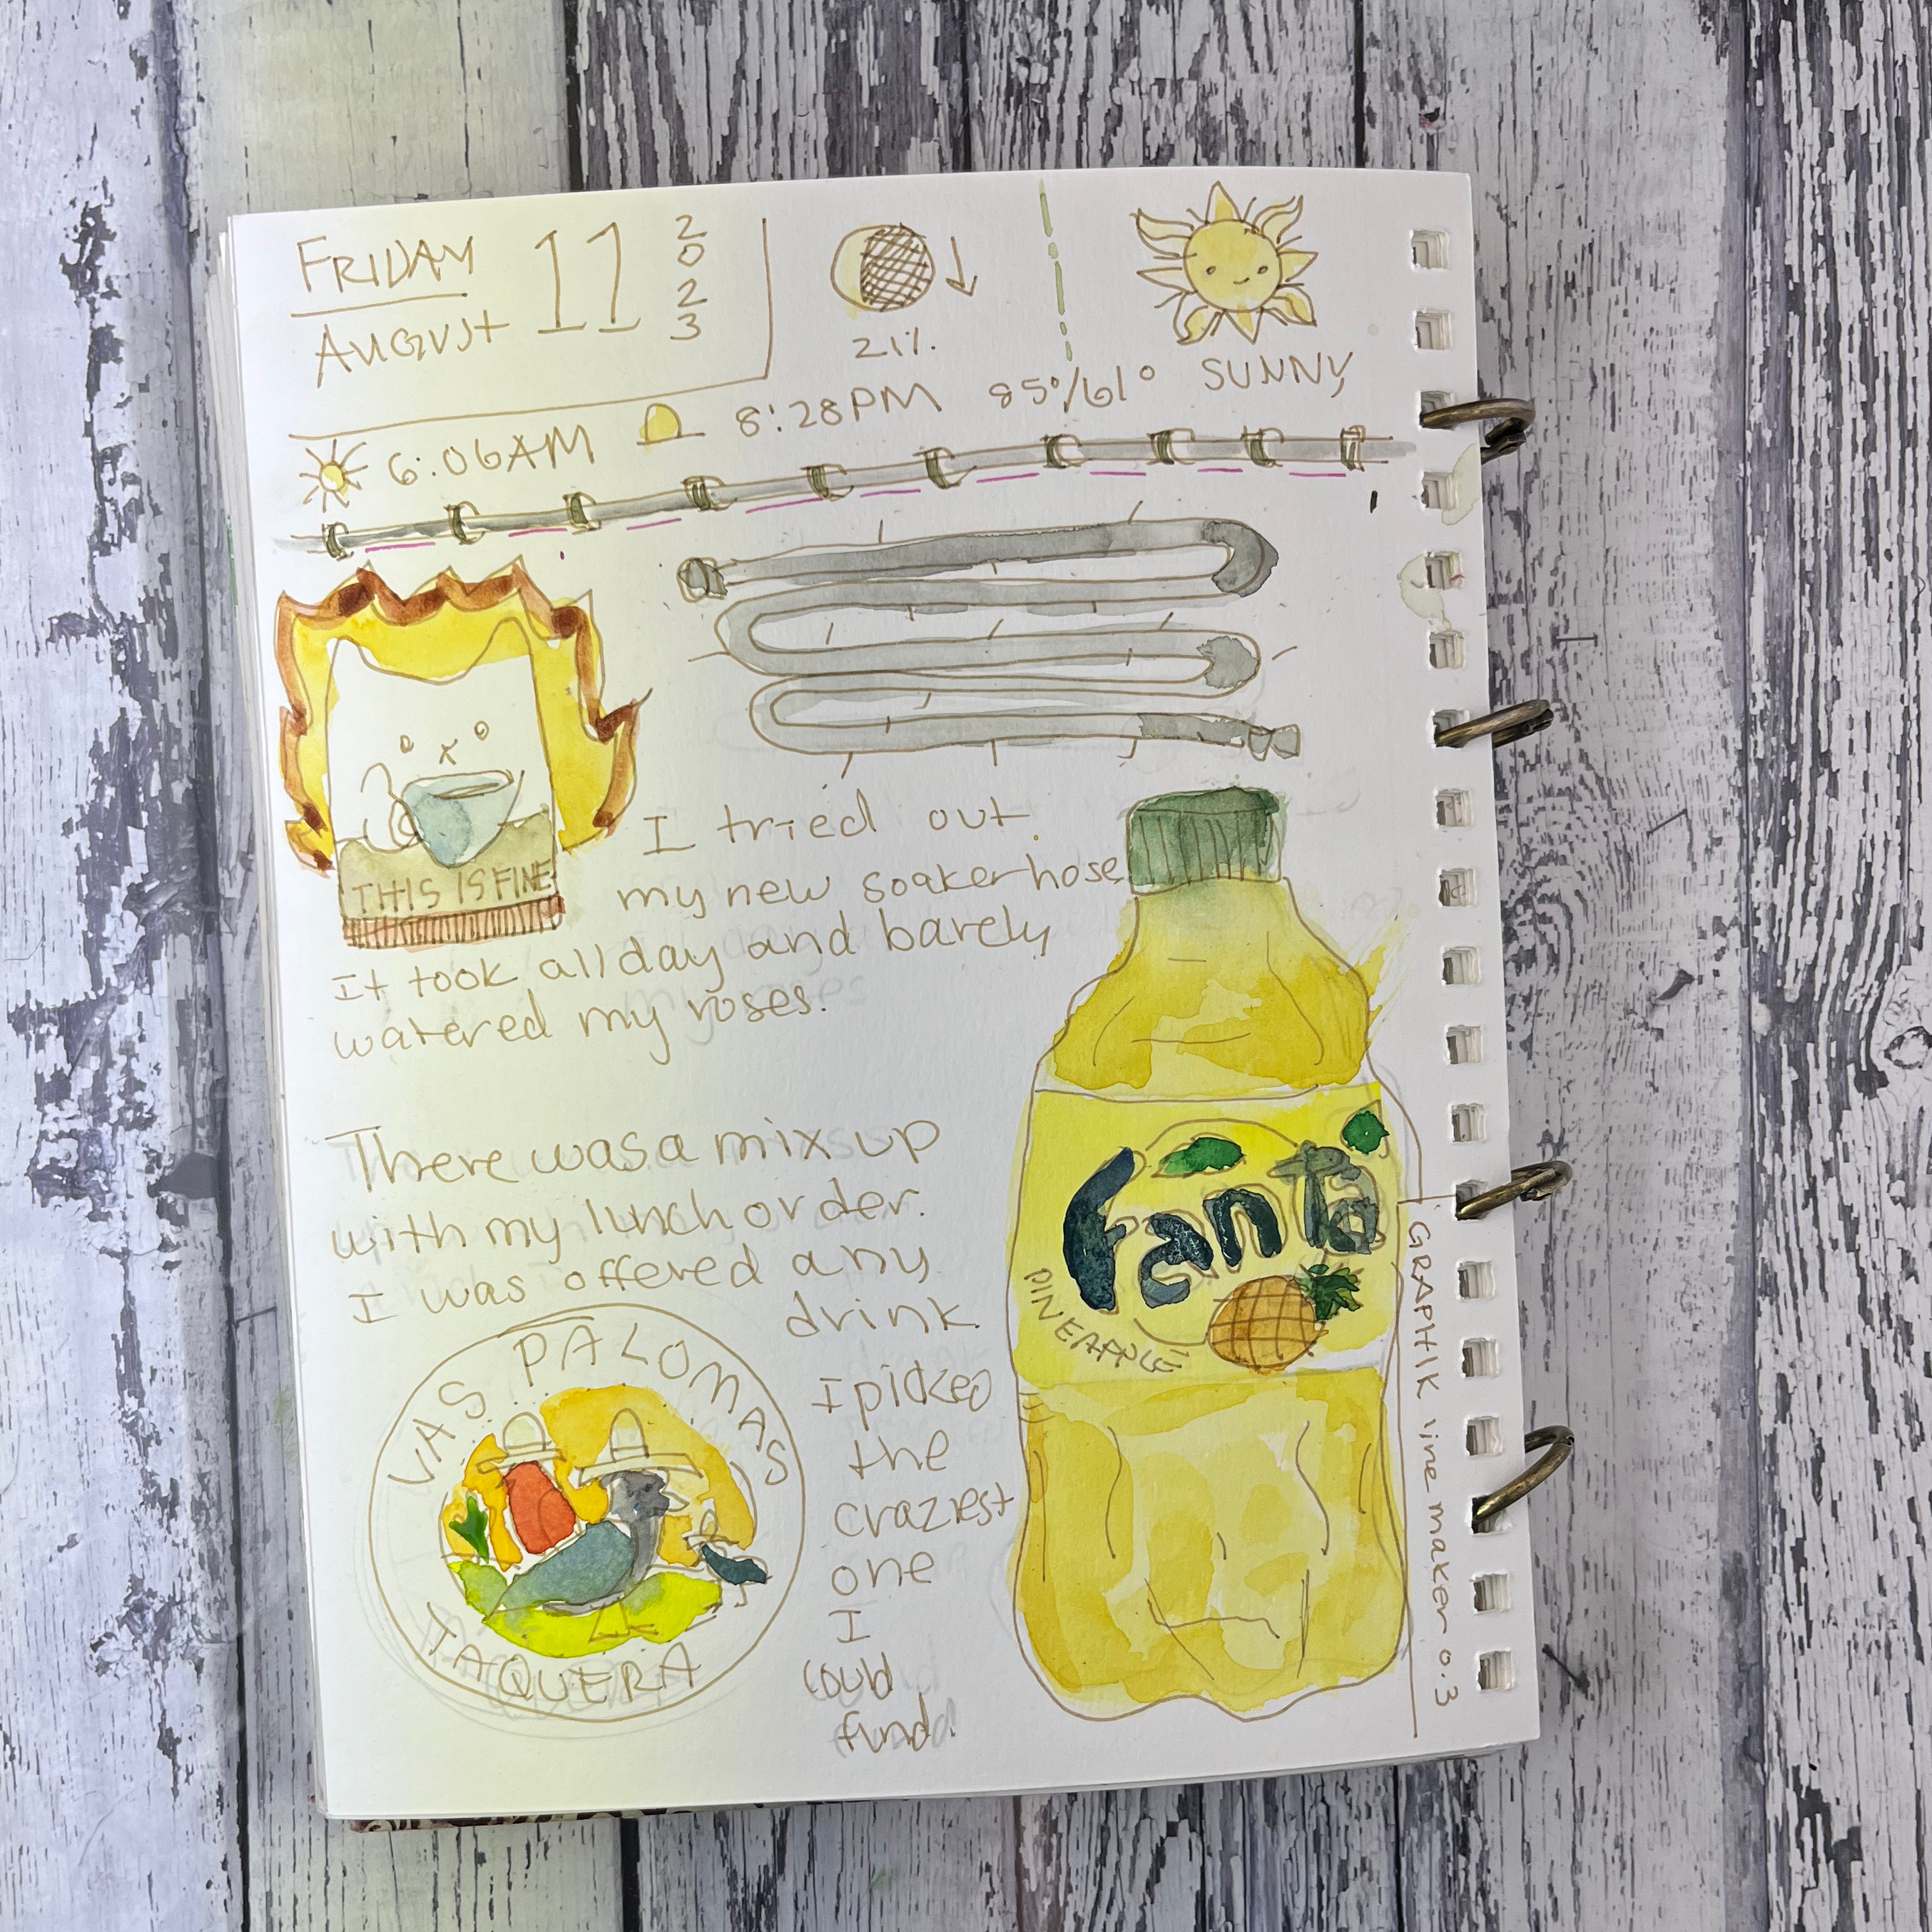 FRIDAY
AUGUST
11
2023
21%
SUNNY
6:06AM
8:28PM
85°/61°
THIS IS FINE
I tried out
my new soaker hose
It took all day and barely
watered my roses.
There was a mix up
with my lunch order.
I was offered any
drink.
I picked
the
craziest
one
I
could
find.
VAS PALOMAS
TAQUERA
Fanta
PINEAPPLE
GRAPHIK line maker 0.3